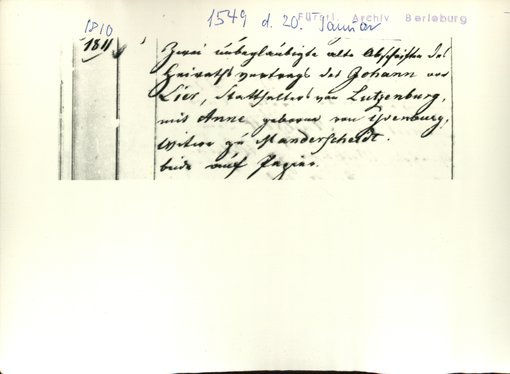 1549 d. 20. Januar
Fürstl. Archiv Berleburg
1810
1811
Zwei unbeglaubigte alte Abschriften des
Heirathsvertrags des Johann von
Lier, Statthalters von Lutzenburg,
mit Anne geborne von Isenburg,
Witwe zu Manderscheidt.
beide auf Papier.